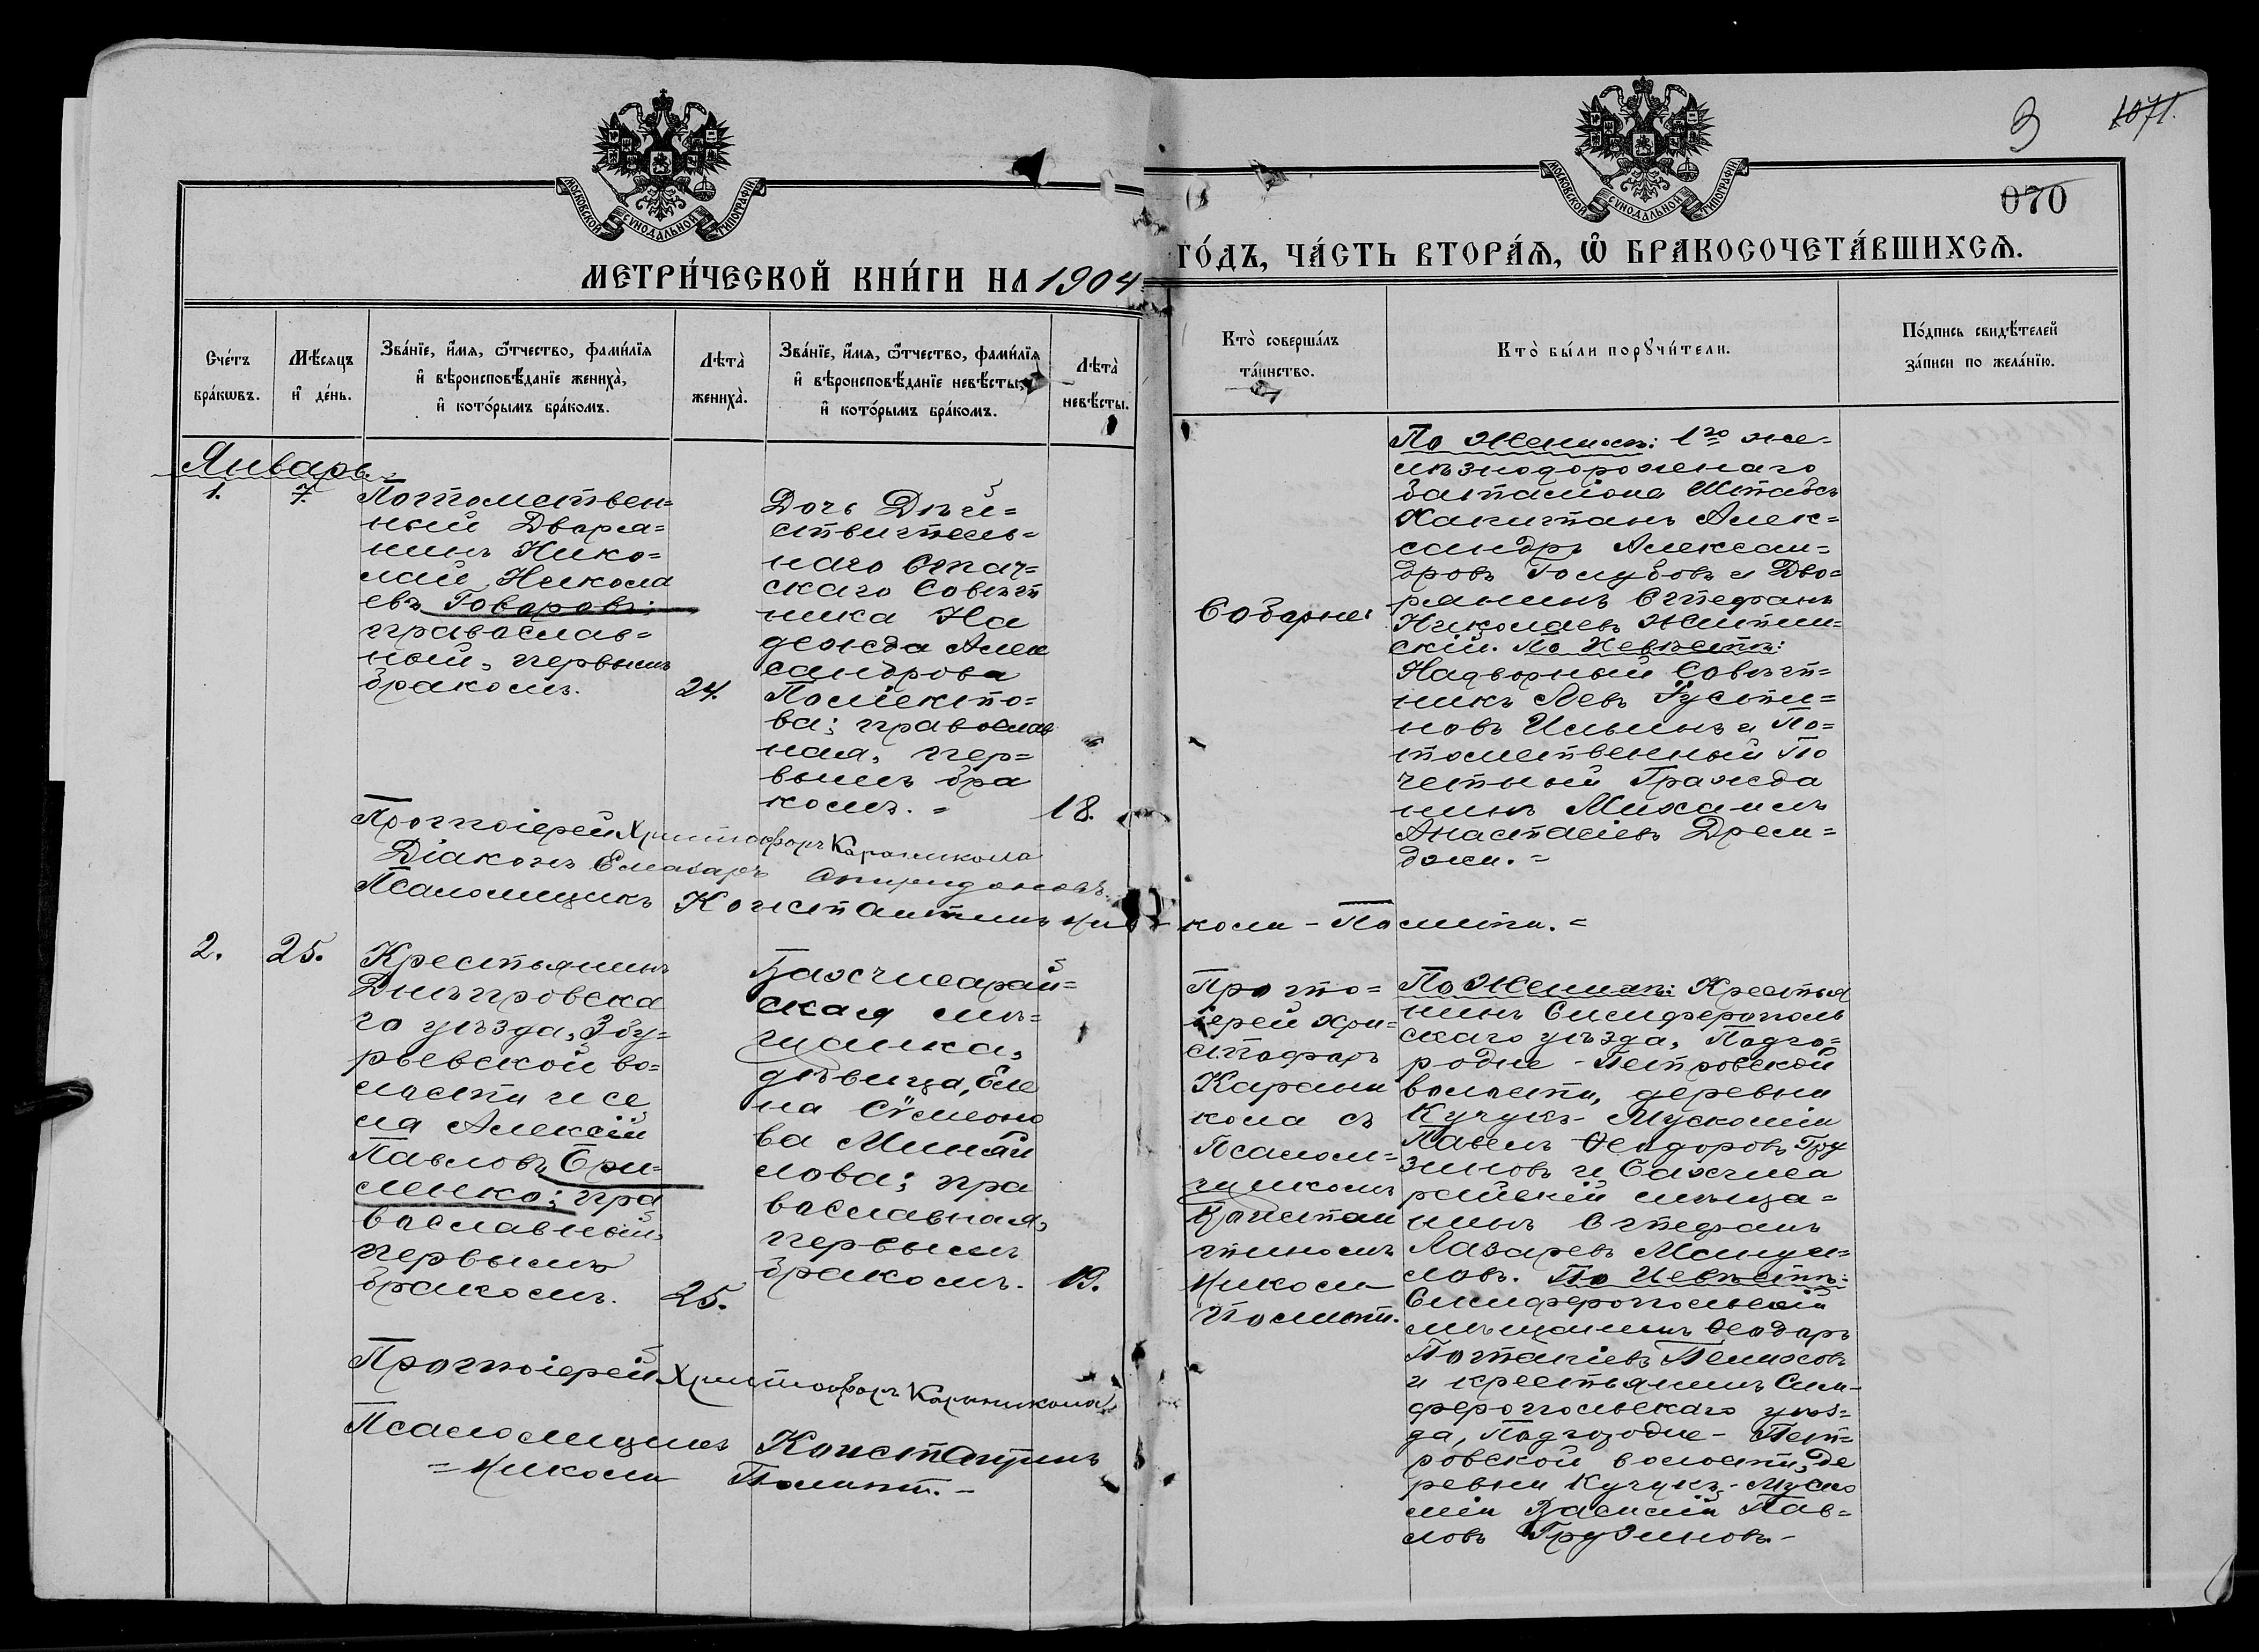 МОСКОВСКОЙ СУНОДАЛЬНОЙ ТИПОГРАФІИ
МОСКОВСКОЙ СУНОДАЛЬНОЙ ТИПОГРАФІИ
3 1071.
070
МЕТРИ́ЧЕСКОЙ КНИ́ГИ НА 1904
ГО́ДЪ, ЧА́СТЬ ВТОРА́Ѧ, Ѽ БРАКОСОЧЕТА́ВШИХСѦ.
Счє́тъ
бра́кѡвъ.
Мѣ́сѧцъ
и҆ дє́нь.
Зва́нїе, и҆́мѧ, ѻ҆́тчество, фами́лїѧ
и҆ вѣроисповѣ́данїе жениха̀,
и҆ кото́рымъ бра́комъ.
Лѣта̀
жениха̀.
Зва́нїе, и҆́мѧ, ѻ҆́тчество, фами́лїѧ
и҆ вѣроисповѣ́данїе невѣ́сты,
и҆ кото́рымъ бра́комъ.
Лѣта̀
невѣ́сты.
Кто̀ соверша́лъ
та́инство.
Кто̀ бы́ли порꙋчи́тели.
По́дпись свидѣ́телей
за́писи по жела́нїю.
Январь.
1.
7.
Потомствен=
ный Дворя=
нинъ Нико=
лай Никола
евъ Говоровъ;
православ=
ный, первымъ
бракомъ.
24.
Дочь Дѣй=
ствитель=
наго Стат=
скаго Совѣт
ника На
дежда Алек
сандрова
Поліекто=
ва; православ
ная, пер=
вымъ бра
комъ. =
18.
Соборне
По Женихѣ: 1го же=
лѣзнодорожнаго
баталіона Штабсъ
Капитанъ Алек=
сандръ Алексан=
дровъ Голубовъ и Дво=
рянинъ Стефанъ
Николаевъ Житин=
скій. По Невѣстѣ:
Надворный Совѣт=
никъ Левъ Густи=
новъ Ильинъ и По=
томственный По
четный Гражда
нинъ Михаилъ
Анастасіевъ
Протоіерей Христофоръ Караникола
Діаконъ Елеазаръ Спиридоновъ.
Псаломщикъ Константинъ Ни=
коли-Полити. =
2.
25.
Крестьянинъ
Днѣпровска
го уѣзда, Збу=
рьевской во=
лости и се
ла Алексій
Павловъ Ери=
менко; пра
вославный,
первымъ
бракомъ.
25.
Бахчисарай=
ская мѣ=
щанка,
дѣвица, Еле
на Сѵмеоно
ва Минай
лова; пра
вославная,
первымъ
бракомъ.
19.
Прото=
іерей Хри=
стофоръ
Карани
кола съ
Псалом=
щикомъ
Констан
тиномъ
Николи
Полити.
По Женихѣ: Крестья
нинъ Симферополь
скаго уѣзда, Подго=
родне-Петровской
волости, деревни
Кучукъ-Мускоміи
Павелъ Ѳеодоровъ Гру
зиновъ и Бахчиса
райскій мѣща=
нинъ Стефанъ
Лазаревъ
ловъ. По Невѣстѣ:
Симферопольскій
мѣщанинъ Ѳеодоръ
Потапіевъ
и крестьянинъ Сим=
феропольскаго уѣз=
да, Подгородне-Пет=
ровской волости, де
ревни Кучукъ-Муско
міи Василій Пав=
ловъ Грузиновъ.-
Протоіерей Христофоръ Караникола
Псаломщикъ Константинъ
= Николи Полити. -